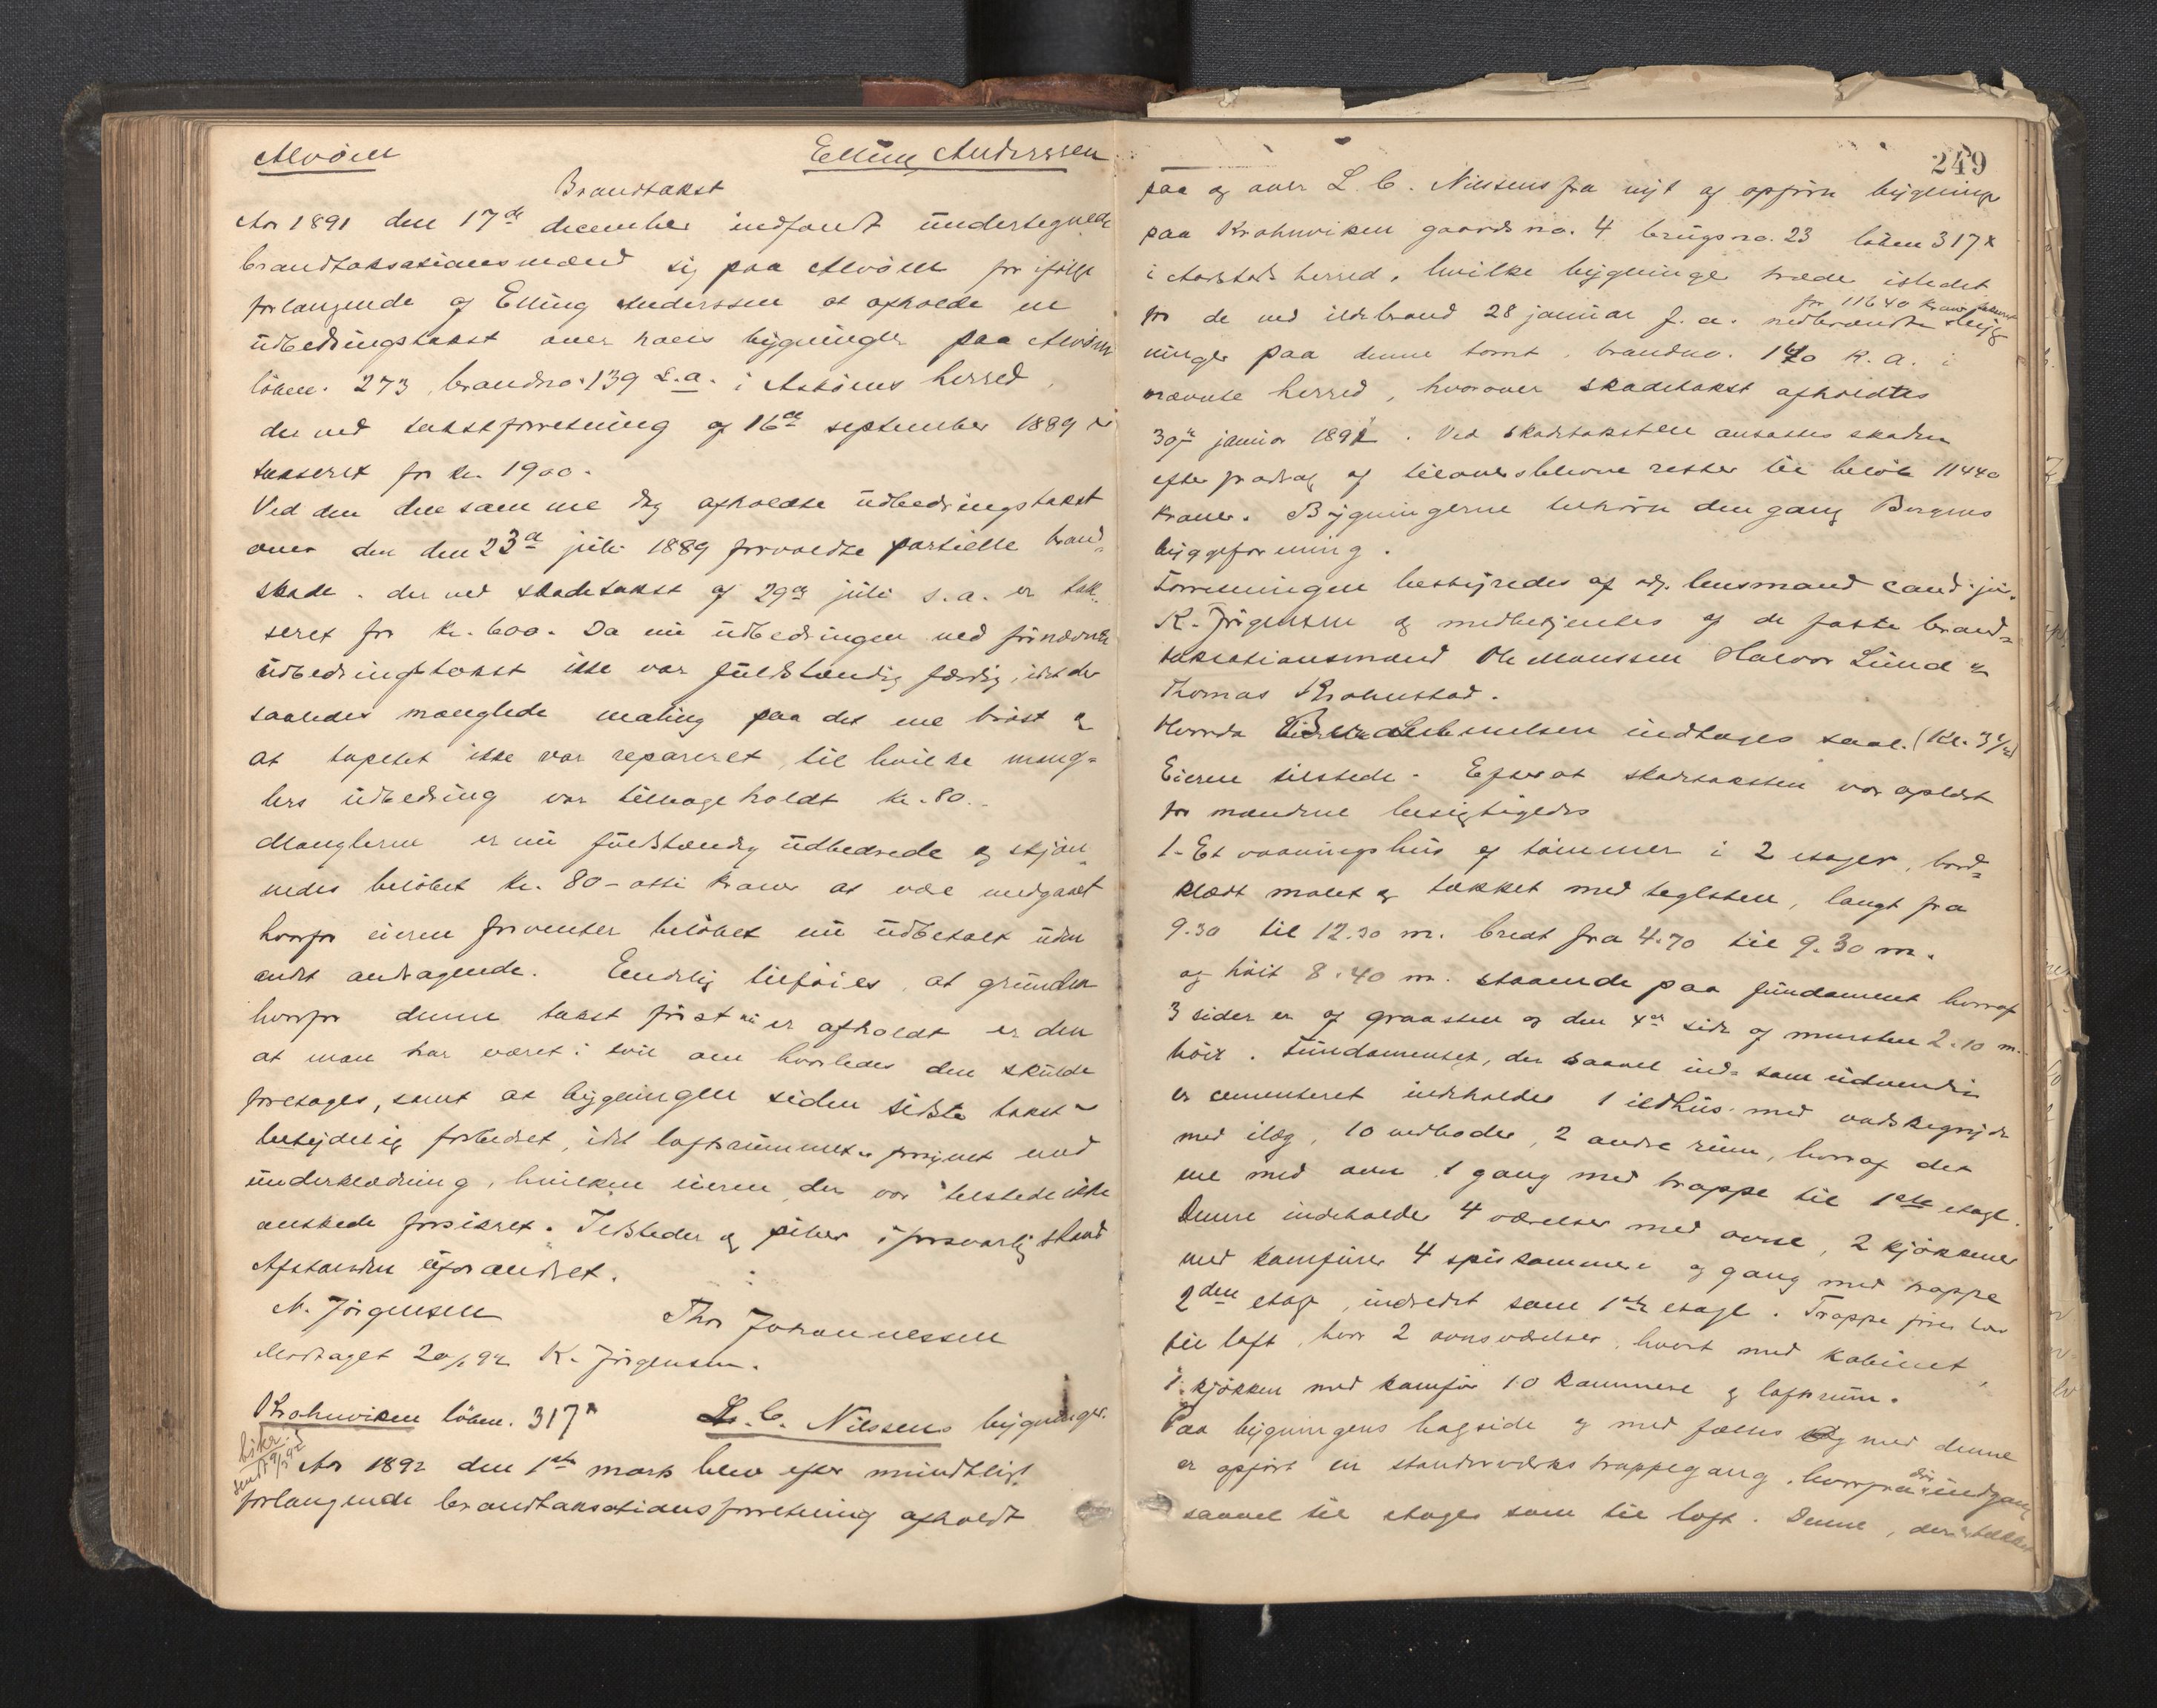 Alvöen Elling Anderssen
Brandtakst
Aar 1891 den 17de december indfandt undertegnede
brandtaksationsmænd sig paa Alvöen for ifölge
forlangende af Elling Anderssen at afholde en
udbedringstakst over hans bygninger paa Alvöen
löben. 273, brandno. 139 L.a. i Asköens herred,
der ved takstforretning af 16de september 1889 er
takseret for kr. 1900.
Ved den den samme dag afholdte udbedringstakst
over den den 23de juli 1889 forvoldte partielle brand-
skade, der ved skadetakst af 29de juli s.a. er tak-
seret for kr. 600. Da nu udbedringen ved förnævnte
udbedringstakst ikke var fuldstændig færdig, idet der
saaledes manglede maling paa det ene bröst &
at tapetet ikke var repareret, til hvilke mang-
lers udbedring var tilbageholdt kr. 80.
Manglerne er nu fuldstændig udbedrede og skjön-
nedes belöbet kr. 80 - otti kroner at være medgaaet
hvorfor eieren forventer belöbet nu udbetalt uden
andet andragende. Endelig tilföies, at grunden
hvorfor denne takst först nu er afholdt er den
at man har været i tvil om hvorledes den skulde
foretages, samt at bygningen siden sidste takst er
betydelig forbedret, idet loftsrummet er forsynet med
underklædning, hvilken eieren, der var tilstede ikke
önskede forsikret. Ildsteder og piber i forsvarlig stand
Afstanden uforandret.
N. Jörgensen Thor Johannessen
Modtaget 20/1 92 K. Jörgensen.
Krohnviken löben. 317x L. C. Nilssens bygninger.
bskr.
sendt 9/3 92
Aar 1892 den 1ste marts blev efter mundtligt
forlangende brandtaksationsforretning afholdt
249
paa og over L. C. Nilssens fra nyt af opförte bygninger
paa Krohnviken gaards no. 4 brugs no. 23 löben 317x
i Aarstads herred, hvilke bygninger træder istedet
for 11640 kroner
for de ved ildebrand 28 januar f.a. nedbrændte byg-
ninger paa denne tomt, brandno. 140 K. a. i
nævnte herred, hvorover skadetakst afholdtes
30te januar 1891. Ved skadetaksten ansattes skaden
efter fradrag af tiloversblevne rester til belöb 11440
kroner. Bygningerne tilhörte dengang Bergens
byggeforening.
Forretningen bestyredes af adj. lensmand cand. jur.
K. Jörgensen og medbetjentes af de faste brand-
taksationsmænd Ole Monssen Halvor Lund &
Thomas Krohnstad.
Hvorda indtoges saal. (Kl. 3 1/2)
Eieren tilstede. Efterat skadetaksten var oplæst
for mændene besigtigedes
1. Et vaaningshus af tömmer i 2 etager, bord-
klædt malet og tækket med teglsten, langt fra
9.30 til 12.30 m. bredt fra 4.70 til 9.30 m.
og höit 8.40 m. staaende paa fundament hvoraf
3 sider er af graasten og den 4de side af mursten 2.10 m.
höit. Fundamentet, der saavel ind- som udvendig
er cementeret indeholder 1 ildhus med vadskegryde
med ilæg, 10 vedboder, 2 andre rum, hvoraf det
ene med ovn 1 gang med trappe til 1ste etage.
Denne indeholder 4 værelser med ovne, 2 kjökkener
med komfurer 4 spiskammere og gang med trappe
2den etage, indredet som 1ste etage. Trappe förer her
til loft, hvor 2 ovnsværelser, hvort med kabinet,
1 kjökken med komfur 10 kammere og loftsrum.
Paa bygningens bagside og med fælles med denne
er opfört en standerværks trappegang, hvorfra der er indgang
saavel til etager som til loft. Denne, der er tækket